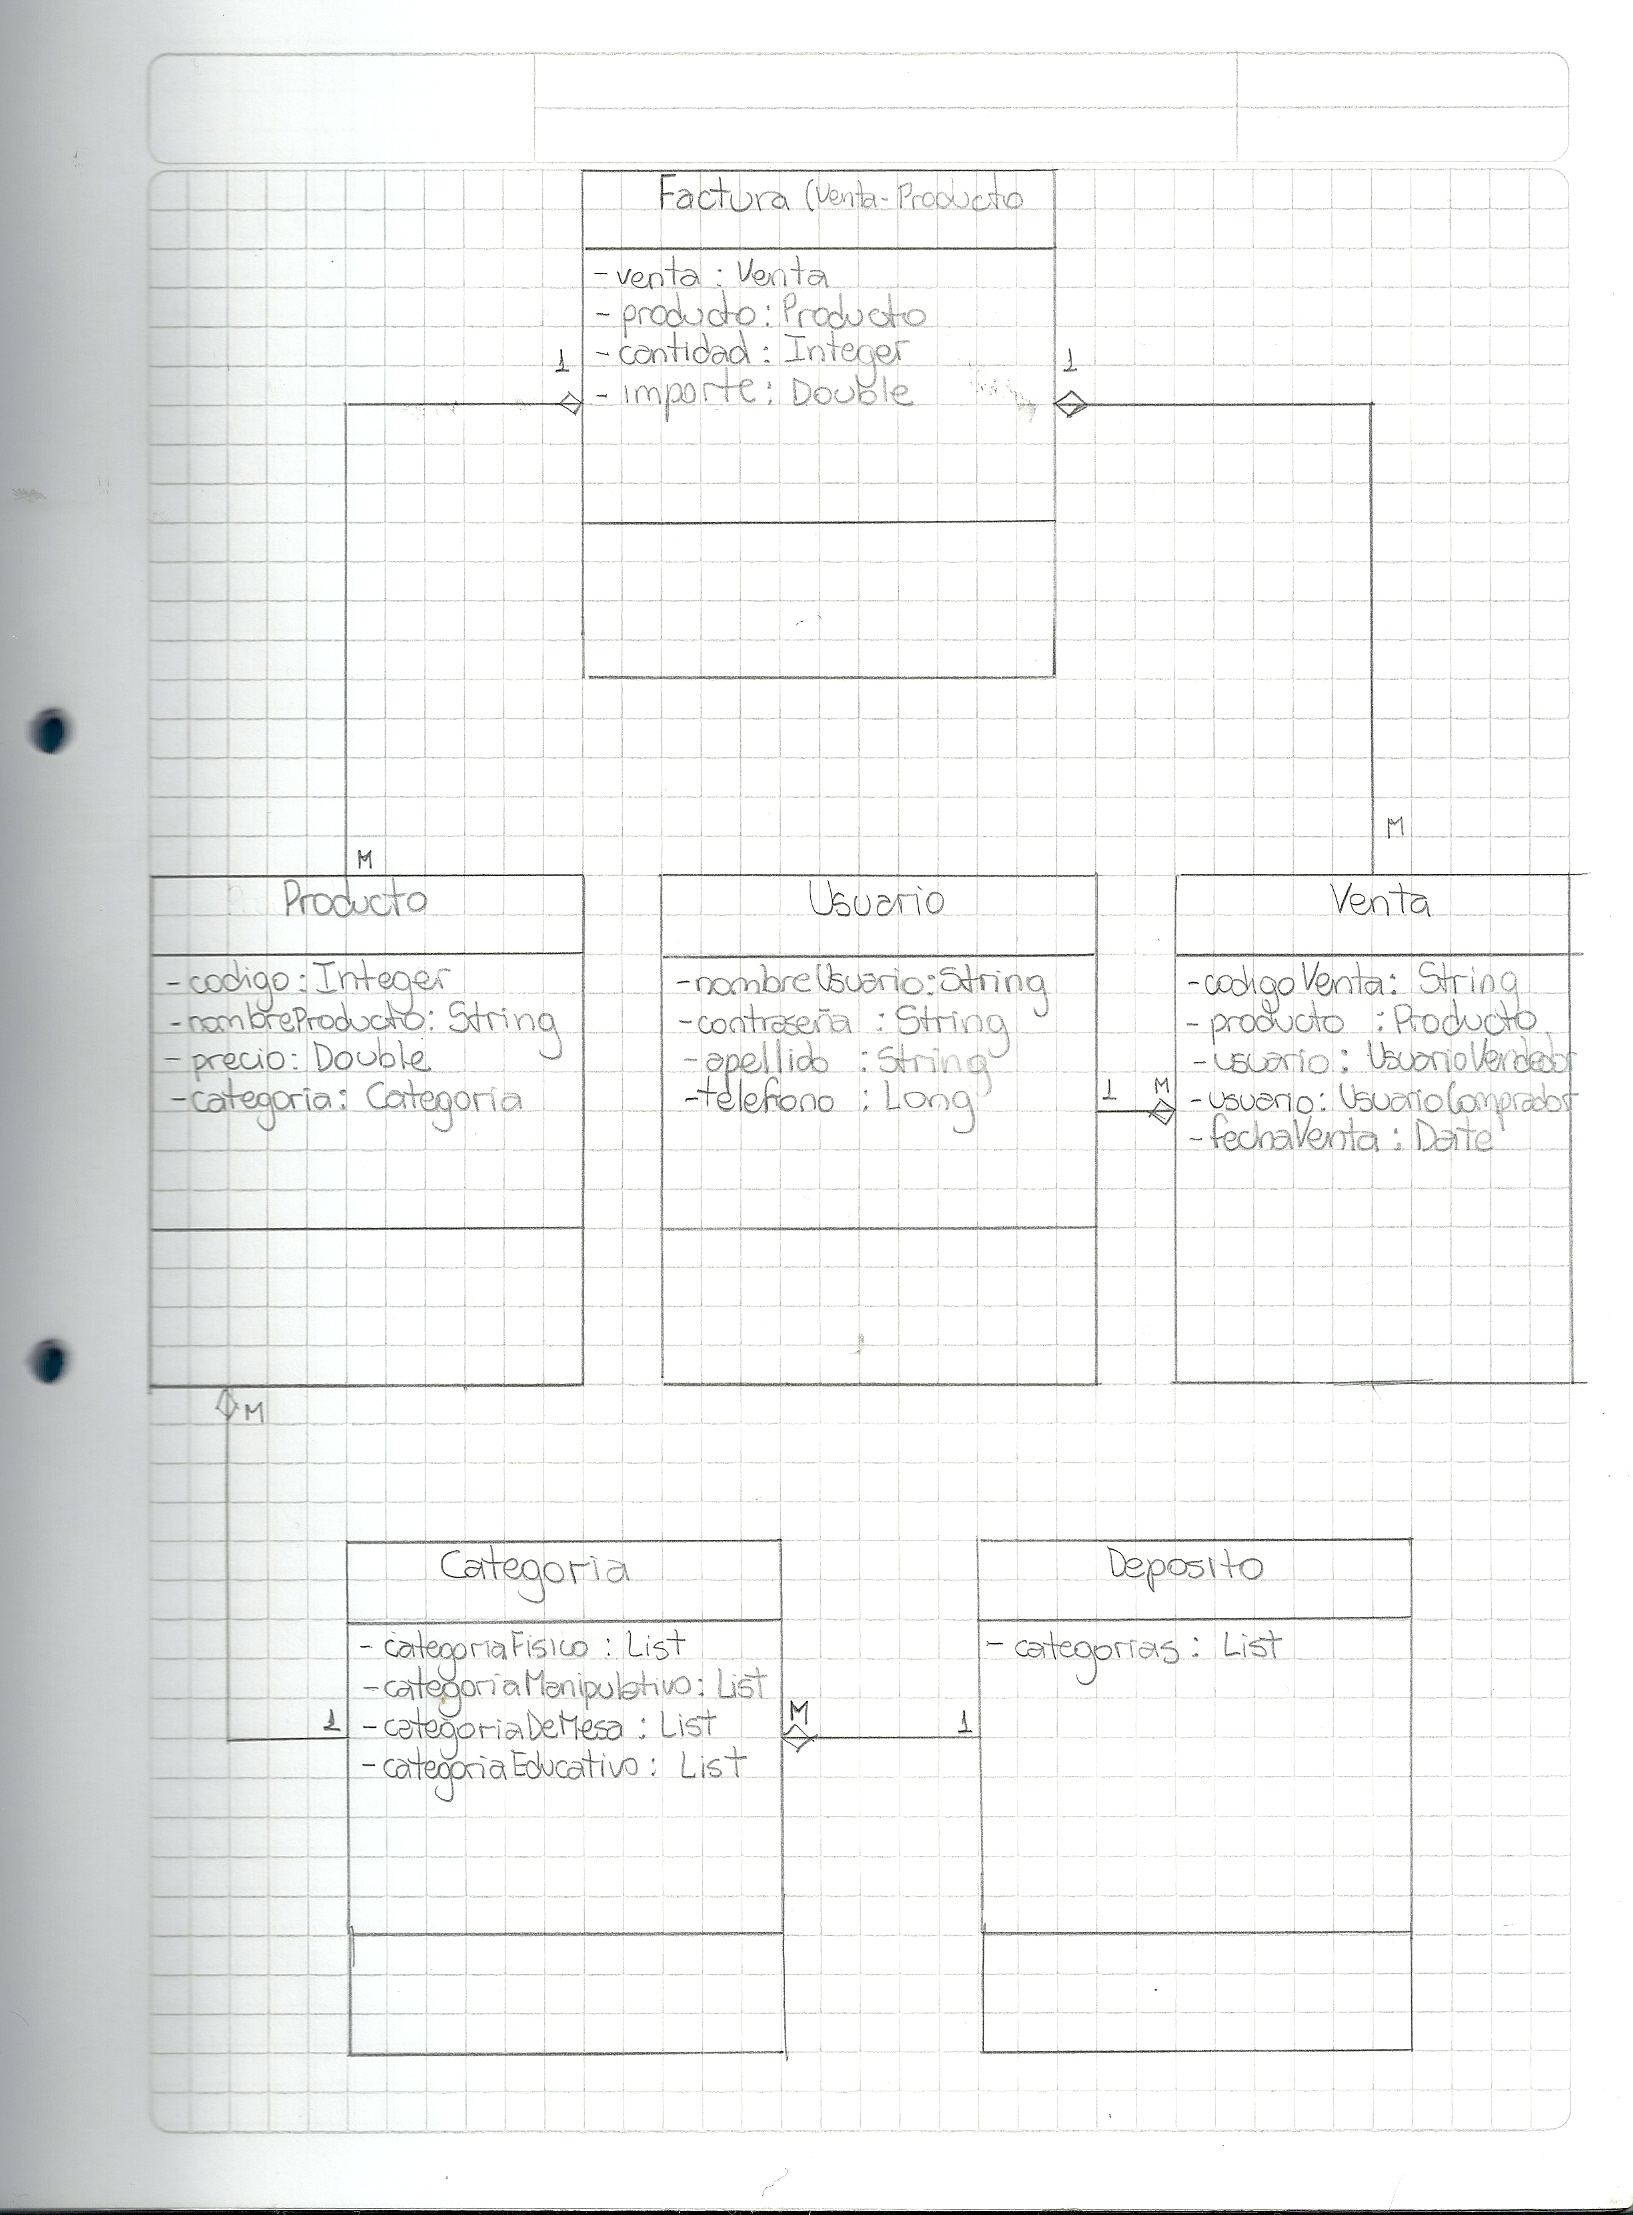 Factura (Venta-Producto
- venta : Venta
- producto : Producto
- cantidad : Integer
- importe : Double
1
1
M
M
Producto
- codigo : Integer
- nombreProducto : String
- precio : Double
- categoria : Categoria
Usuario
- nombreUsuario : String
- contraseña : String
- apellido : String
- telefono : Long
1
M
Venta
- codigoVenta : String
- producto : Producto
- usuario : UsuarioVendedor
- usuario : UsuarioComprador
- fechaVenta : Date
M
1
Categoria
- categoriaFisico : List
- categoriaManipulativo : List
- categoriaDeMesa : List
- categoriaEducativo : List
M
1
Deposito
- categorias : List